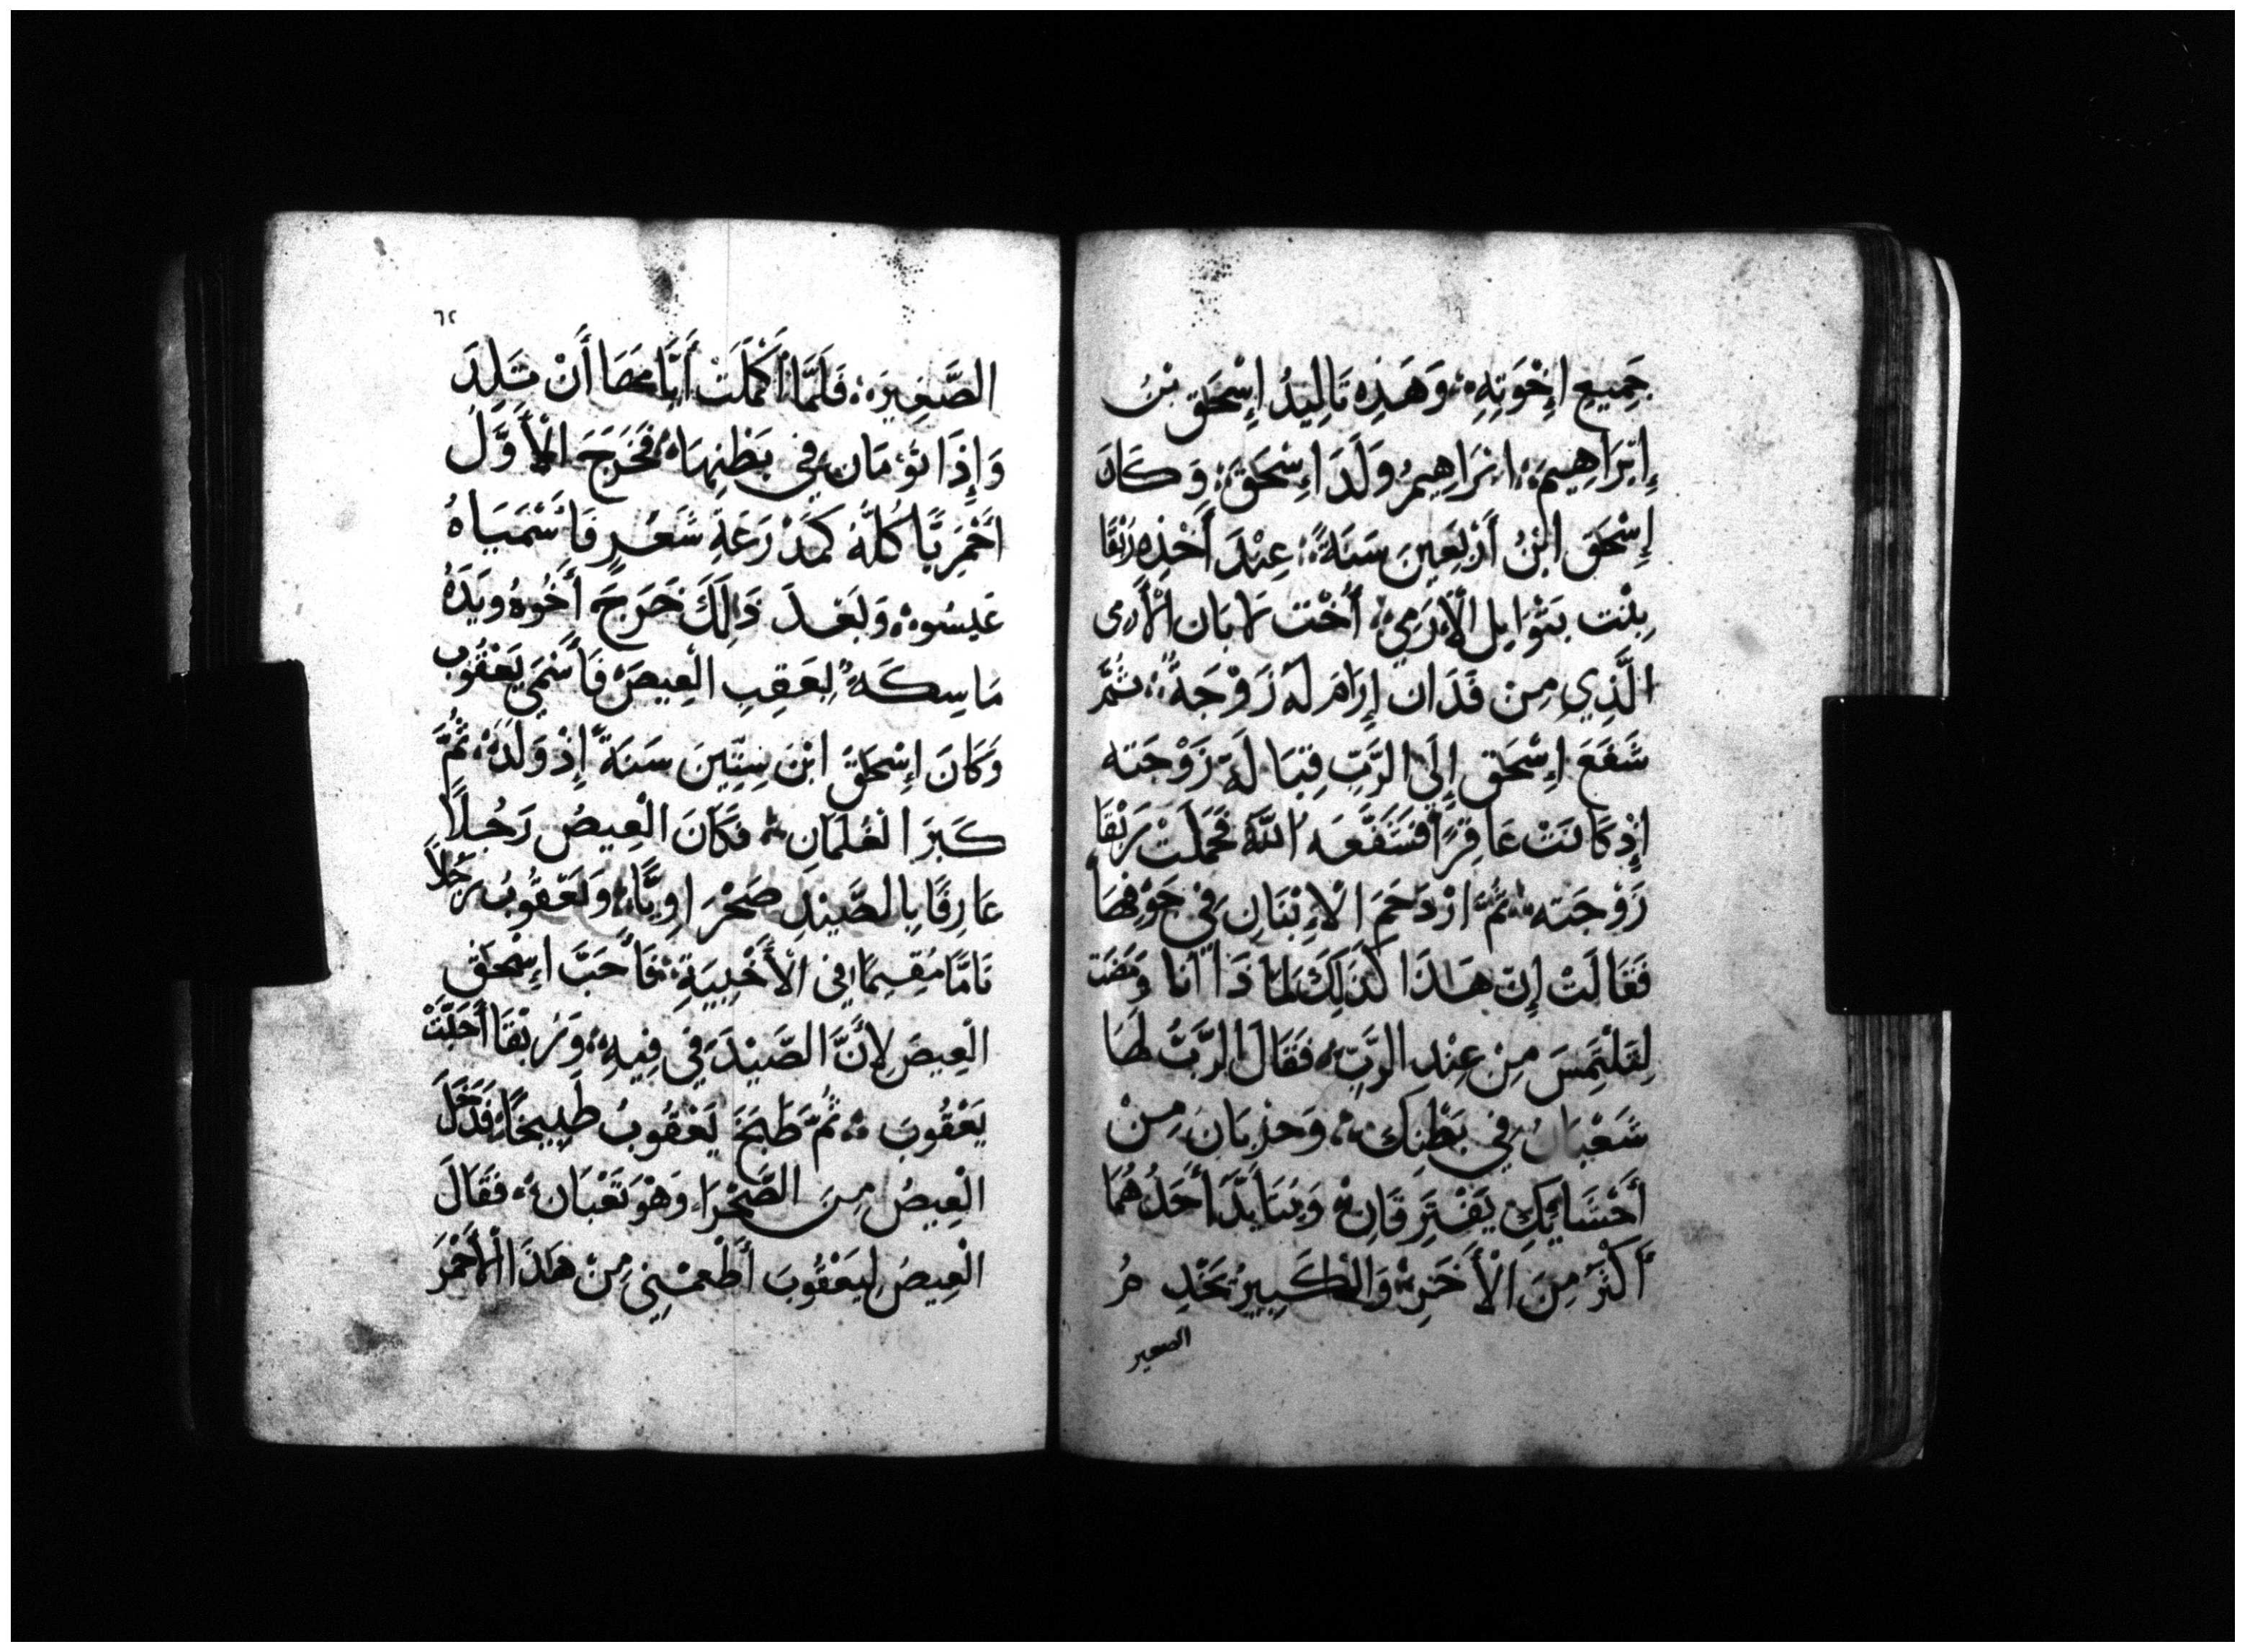 جَمِيعِ إِخْوَتِهِ وَهَذِهِ تَالِيدُ إِسْحَقَ بْنُ
إِبْرَاهِيمَ ابْرَاهِيمُ وَلَدَ اِسْحَقَ وَكَانَ
إِسْحَقَ ابْنُ أَرْبَعِينَ سَنَةً عِنْدَ أَخْذِهِ رَبْقَا
بِنْت بَتْوَايِل الْإِرَمِي أُخْت لَابَان الْأَرمى
الَّذِي مِنْ فَدَان إِرَامَ لَهُ زَوْجَةً ثُمَّ
شَفَعَ اِسْحَق إِلَى الرَّبِّ قِبَالَةَ زَوْجَته
إِذْ كَانَتْ عَاقِرًا فَشَفَّعَه اللَّهُ فَحَمَلَتْ رَبْقَا
زَوْجَته ثُمَّ ازْدَحَمَ الْإِبْنَانِ فِي جَوْفِهَا
فَقَالَتْ إِن هَذَا كَذَلِكَ لِمَا ذَا أَنَا وَمَضَت
لِتَلْتَمِسَ مِنْ عِنْدِ الرَّبِّ فَقَالَ الرَّبُّ لَهَا
شَعْبَانُ فِي بَطْنِكَ وَحِزْبَانِ مِنْ
أَحْشَائِكِ يَفْتَرِقَانِ وَيَتَأَيَّدَ أَحَدُهُمَا
أَكْثَرَ مِنَ الْأَخَرِ وَالْكَبِيرُ يَخْدِمُ
الصغير
٦٢
الصَّغِيرَ فَلَمَّا أَكْمَلَتْ أَيَّامَهَا أَنْ تَلِدَ
وَإِذَا تَوْمَان فِي بَطْنِهَا فَخَرَجَ الْأَوَّلَ
أَحْمَرِيًّا كُلُّهُ كَمَدْرَعَةِ شَعْرٍ فَأَسْمَيَاهُ
عَيسُوه وَبَعْدَ ذَلِكَ خَرَجَ أَخُوهُ وَيَدَهُ
مَاسِكَةً لِعَقِبِ الْعِيصَ فَأَسْمَى يَعْقُوب
وَكَانَ إِسْحَقَ ابْنَ سِتِّينَ سَنَةً إِذْ وَلَدَهُ ثُمَّ
كَبَرَ الْغُلَمَانِ فَكَانَ الْعِيصُ رَجُلاً
عَارِفًا بِالصَّيْدِ صَحْرَاوِيًّا وَيَعْقُوبُ رَجُلاً
تَامًّا مُقِيمًا فِي الْأَخْبِيَةِ فَأَحَبَّ اِسْحَق
الْعِيصَ لِأَنَّ الصَّيْدَ فِي فِيهِ وَرَبْقَا أَحَبَّتْ
يَعْقُوبَ ثُمَّ طَبَخَ يَعْقُوبُ طَبِيخًا فَدَخَلَ
الْعِيصُ مِنَ الصَّحْرَاء وَهْوَ تَعْبَان فَقَالَ
الْعِيصُ لِيَعْقُوبَ أَطْعِمْنِي مِنْ هَذَا الْأَحْمَرَ